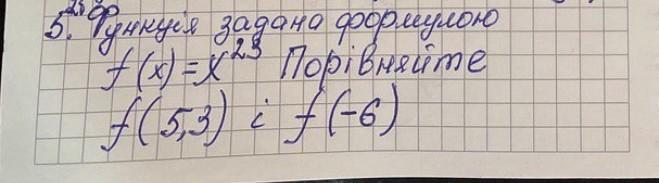 5. Функція задана формулою
f(x)=x²³ Порівняйте
f(5,3) і f(-6)